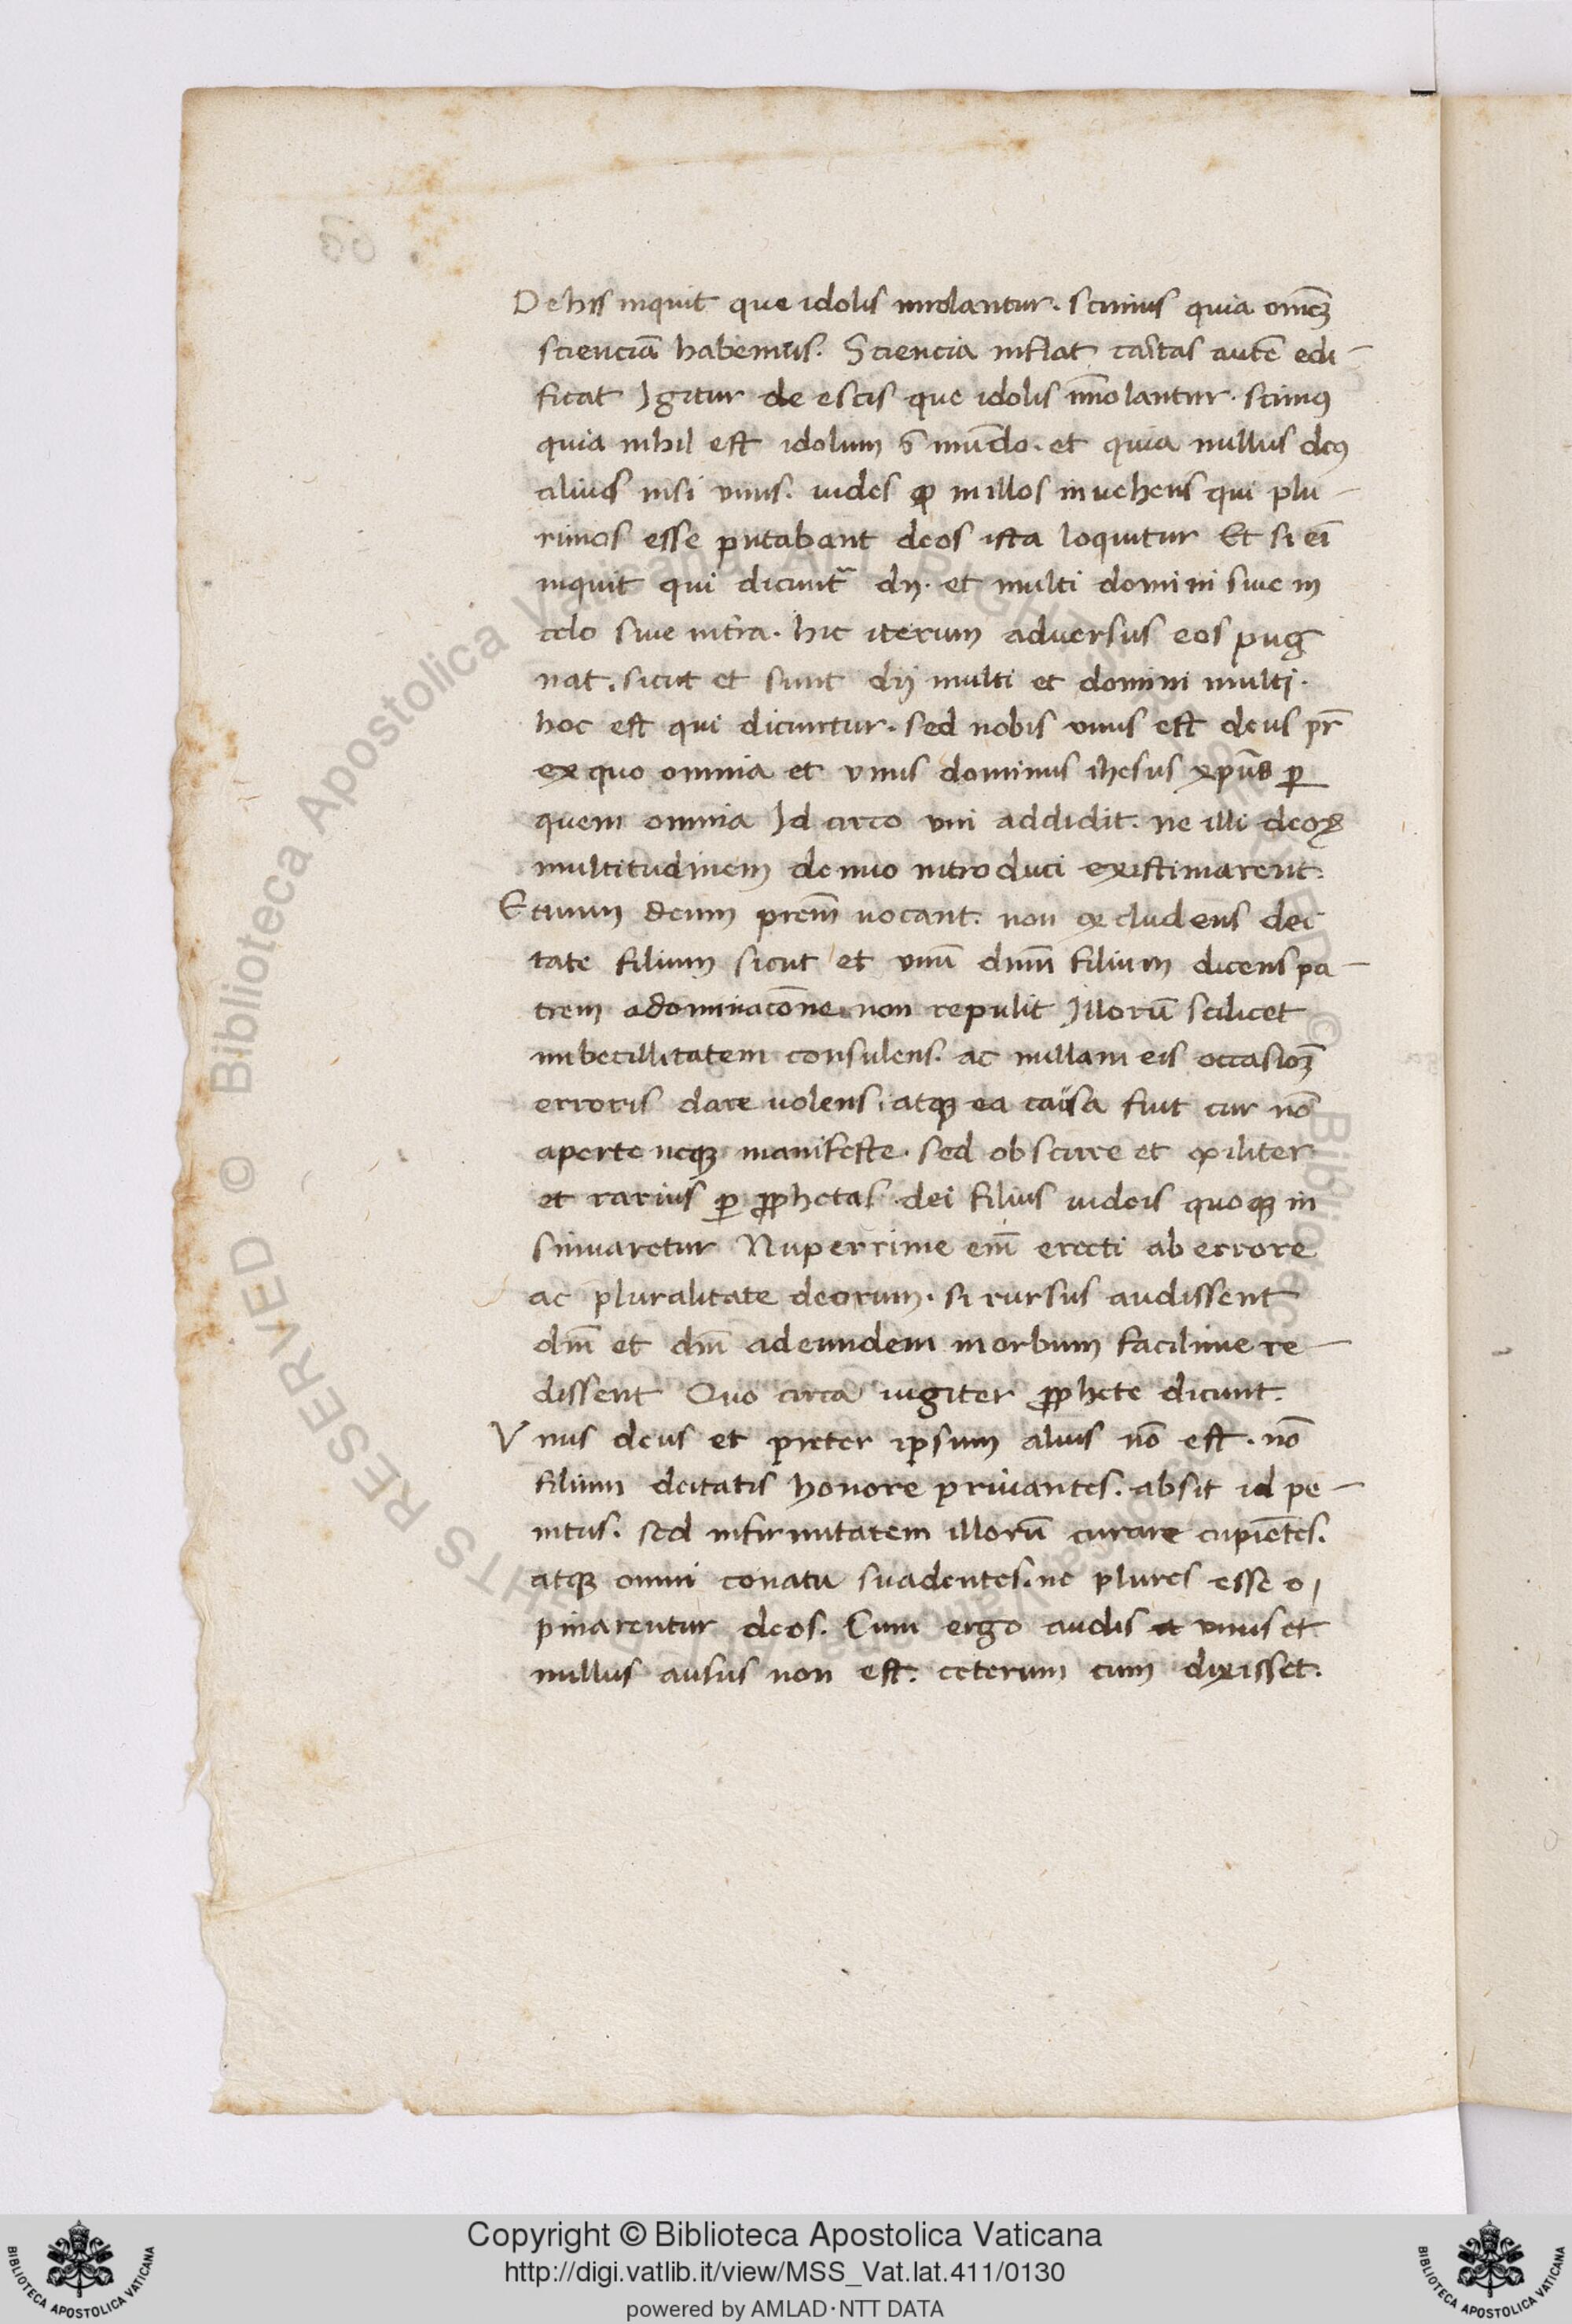 De hiis inquit que idolis imolantur. scimus quia om̄eʒ
scienciā habemus. Sciencia inflat caritas autē edi-
ficat Igitur de escis que idolis īmolantur. scimꝰ
quia nihil est idolum ī mundo. et quia nullus deꝰ
alius nisi vnus. uides ꝙ in illos inuehens qui plu-
rimos esse putabant deos ista loquitur Et si em̄
inquit qui dicunt᷑ dij. et multi domini siue in
celo siue in tr̄a. hic iterum aduersus eos pug
nat. sicut et sunt dij multi et domini multi.
hoc est qui dicuntur. sed nobis vnus est deus pr̄
ex quo omnia et vnus dominus ihesus xpūs ꝑ
quem omnia Id circo vni addidit. ne illi deoꝝ
multitudinem denuo introduci existimarent.
Et unum deum prem̄ uocant. non excludens dei
tate filium sicut et vnū dnm̄ filium dicens pa-
trem a dominacōne non repulit Illorū scilicet
imbecillitatem consulens. ac nullam eis occasioʒ
erroris dare uolens. atqꝫ ea causa fuit cur nō
aperte neqꝫ manifeste. sed obscure et exiliter
et rarius ꝑ ꝓphetas dei filius iudeis quoqꝫ in
sinuaretur Nuperrime em̄ erecti ab errore
ac pluralitate deorum. si rursus audissent
dm̄ et dm̄ ad eundem morbum facilime re-
dissent Quo circa iugiter ꝓphete dicunt.
Vnus deus et preter ipsum alius nō est. nō
filium deitatis honore priuantes. absit id pe-
nitus. sed infirmitatem illorū curare cupiētes.
atqꝫ omni conatu suadentes. ne plures esse o/
pinarentur deos. Cum ergo audis vnus et
nullus ausus non est. ceterum cum dixisset.
60
© Biblioteca Apostolica Vaticana
Copyright © Biblioteca Apostolica Vaticana
http://digi.vatlib.it/view/MSS_Vat.lat.411/0130
powered by AMLAD·NTT DATA
BIBLIOTECA APOSTOLICA VATICANA
BIBLIOTECA APOSTOLICA VATICANA